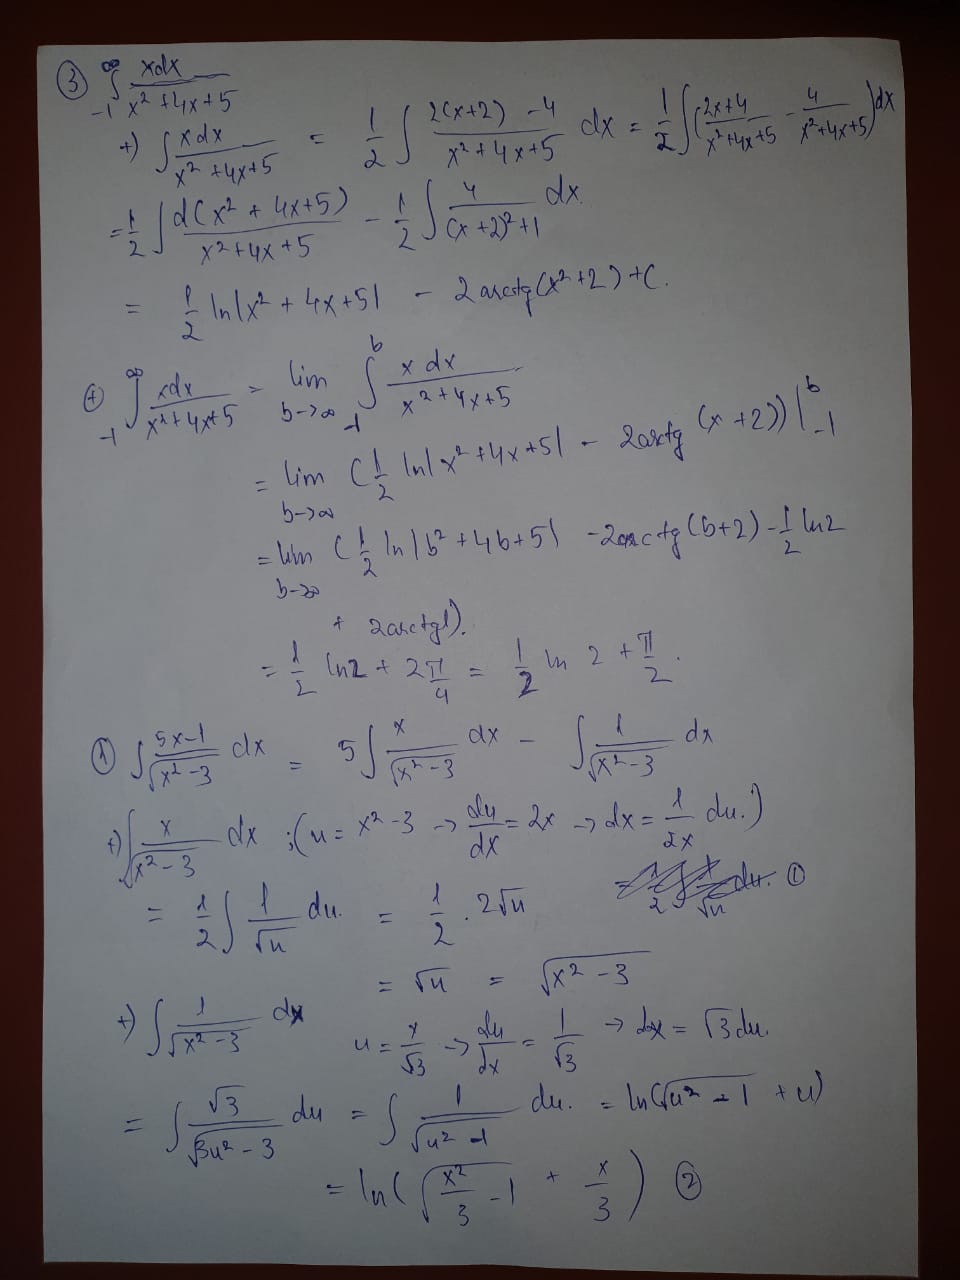 ③ ∫_{-1}^{∞} xdx / (x² + 4x + 5)
+) ∫ xdx / (x² + 4x + 5) = 1/2 ∫ (2(x+2) - 4) / (x² + 4x + 5) dx = 1/2 ∫ ((2x+4) / (x² + 4x + 5) - 4 / (x² + 4x + 5)) dx
= 1/2 ∫ d(x² + 4x + 5) / (x² + 4x + 5) - 1/2 ∫ 4 / ((x+2)² + 1) dx.
= 1/2 ln|x² + 4x + 5| - 2 arctg(x² + 2) + C.
⊕ ∫_{-1}^{∞} xdx / (x² + 4x + 5) = lim_{b→∞} ∫_{-1}^{b} x dx / (x² + 4x + 5)
= lim_{b→∞} (1/2 ln|x² + 4x + 5| - 2arctg (x + 2)) |_{-1}^{b}
= lim_{b→∞} (1/2 ln|b² + 4b + 5| - 2arctg(b+2) - 1/2 ln2
+ 2arctg1).
= 1/2 ln2 + 2 π/4 = 1/2 ln 2 + π/2.
① ∫ (5x-1) / √(x² - 3) dx = 5 ∫ x / √(x² - 3) dx - ∫ 1 / √(x² - 3) dx
+) ∫ x / √(x² - 3) dx ; (u = x² - 3 → du/dx = 2x → dx = 1/2x du.)
= 1/2 ∫ 1/√u du. = 1/2 . 2√u ①
= √u = √(x² - 3)
+) ∫ 1 / √(x² - 3) dx u = x/√3 → du/dx = 1/√3 → dx = √3 du.
= ∫ √3 / √(3u² - 3) du = ∫ 1 / √(u² - 1) du. = ln(√(u² - 1) + u)
= ln(√(x²/3 - 1) + x/3) ②